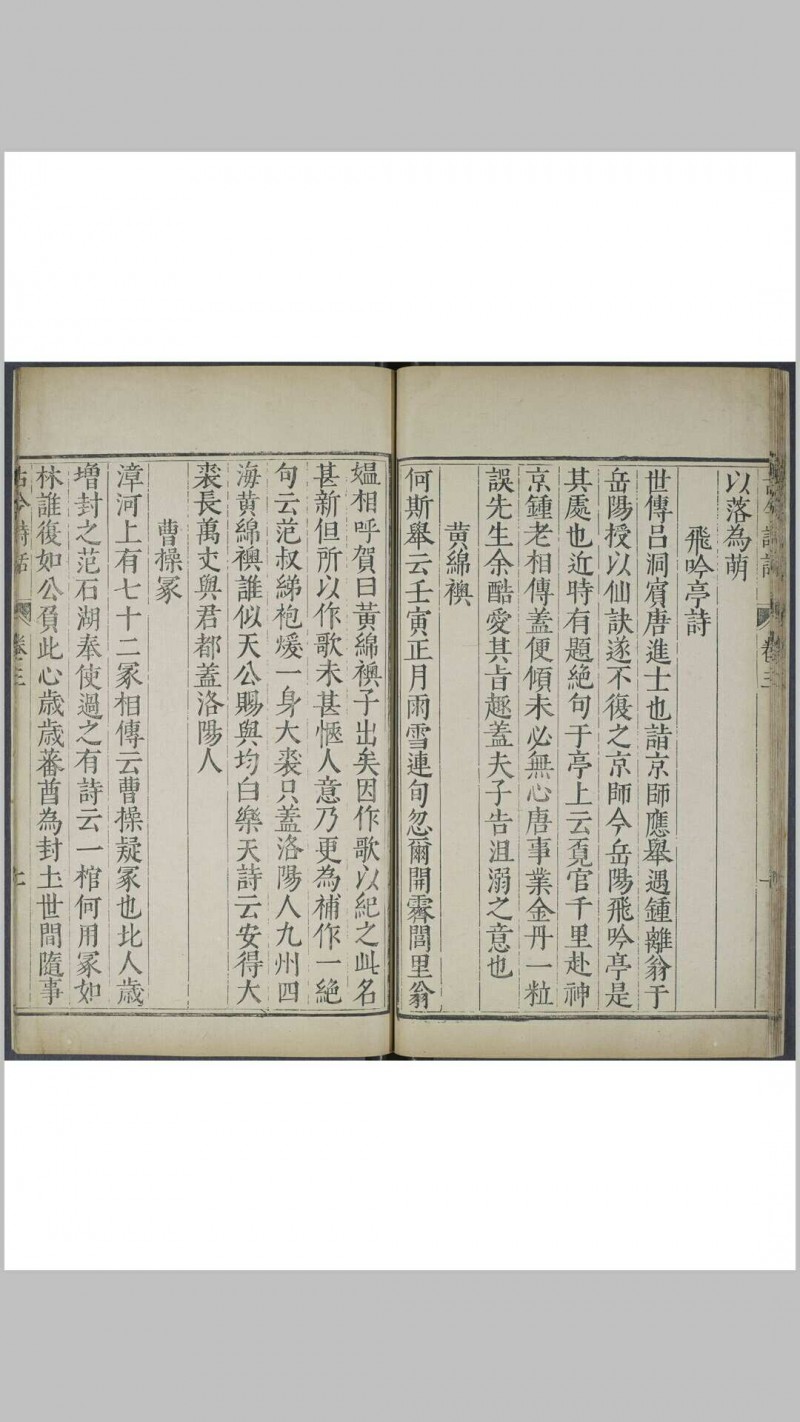 以落為萌
飛吟亭詩
世傳呂洞賓唐進士也詣京師應舉遇鍾離翁于
岳陽授以仙訣遂不復之京師今岳陽飛吟亭是
其處也近時有題絕句于亭上云覔官千里赴神
京鍾老相傳蓋便傾未必無心唐事業金丹一粒
誤先生余酷愛其㫖趣蓋夫子告沮溺之意也
黃綿襖
何斯舉云壬寅正月雨雪連旬忽爾開霽閭里翁
媼相呼賀曰黃綿襖子出矣因作歌以紀之此名
甚新但所以作歌未甚愜人意乃更為補作一絕
句云范叔綈袍煖一身大裘只蓋洛陽人九州四
海黃綿襖誰似天公賜與均白樂天詩云安得大
裘長萬丈與君都蓋洛陽人
曹操冢
漳河上有七十二冢相傳云曹操疑冢也北人歲
增封之范石湖奉使過之有詩云一棺何用冢如
林誰復如公負此心歲歲蕃酋為封土世間隨事
古今詩話 卷三